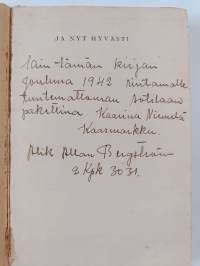 JA NYT HYVÄSTI
Sain tämän kirjan
jouluna 1942 rintamalle
tuntemattoman sotilaan
pakettina Kaarina Niemelä
Kaasmarkku.
Allan Bergström
2 Kpk 3031.